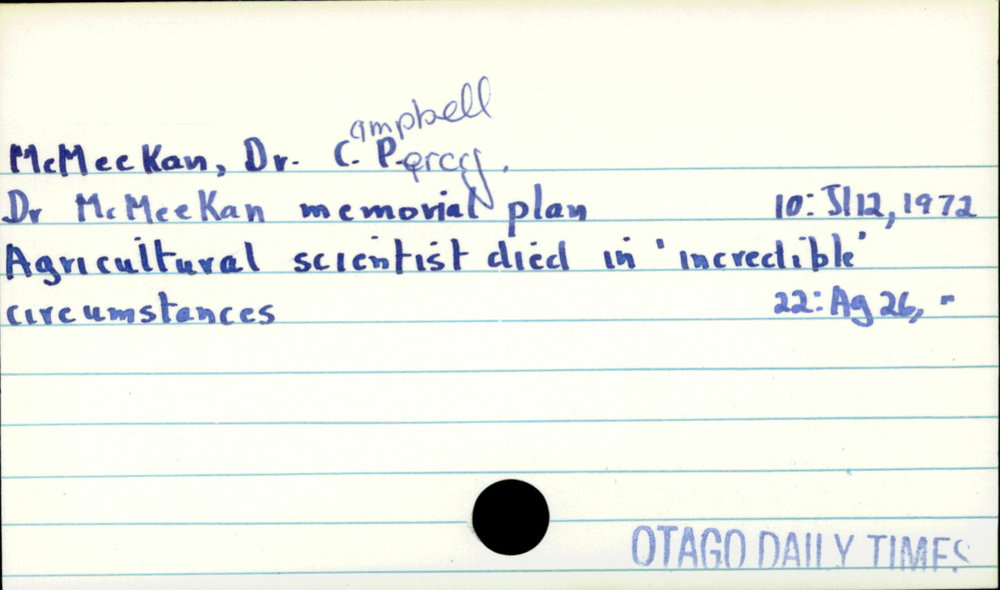 McMeeKan, Dr. C.ampbell P.ercy.
Dr McMeeKan memorial plan 10: Jl12, 1972
Agricultural scientist died in 'incredible'
circumstances 22: Ag 26, "
OTAGO DAILY TIMES